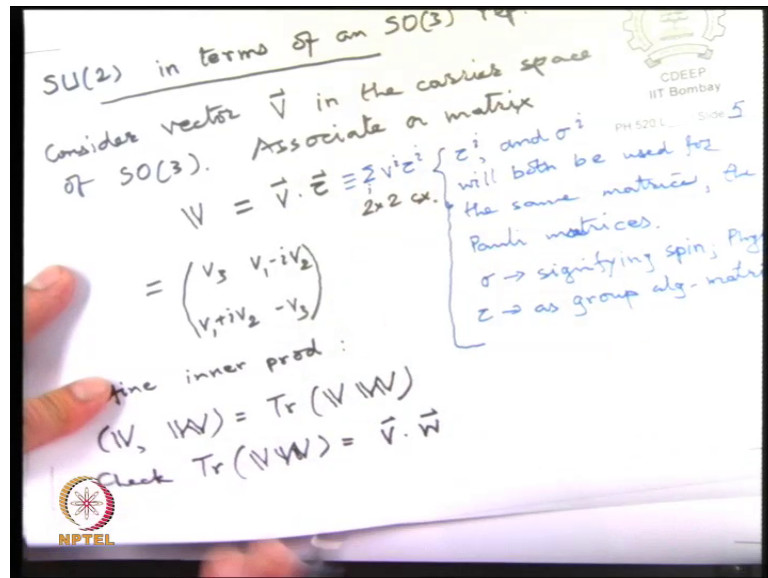 SU(2) in terms of an SO(3) rep.
CDEEP
IIT Bombay
PH 520 L Slide 5
Consider vector V⃗ in the carrier space
of SO(3). Associate a matrix
𝕍 = V⃗ . τ⃗ ≡ Σ_i V^i τ^i
2x2 cx.
= ( V₃ V₁-iV₂
V₁+iV₂ -V₃ )
{ τ^i, and σ^i
will both be used for
the same matrice, the
Pauli matrices.
σ → signifying spin; Phy
τ → as group alg-matri
fine inner prod :
(𝕍, 𝕎) = Tr (𝕍 𝕎)
Check Tr (𝕍𝕎) = V⃗ . W⃗
NPTEL